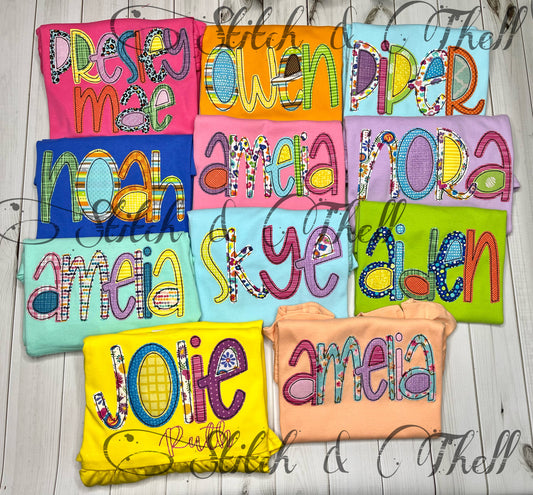 Stitch & Thell
presley
mae
owen
piper
noah
amelia
nora
Stitch & Thell
amelia
skye
aiden
jolie
Ruth
amelia
Stitch & Thell